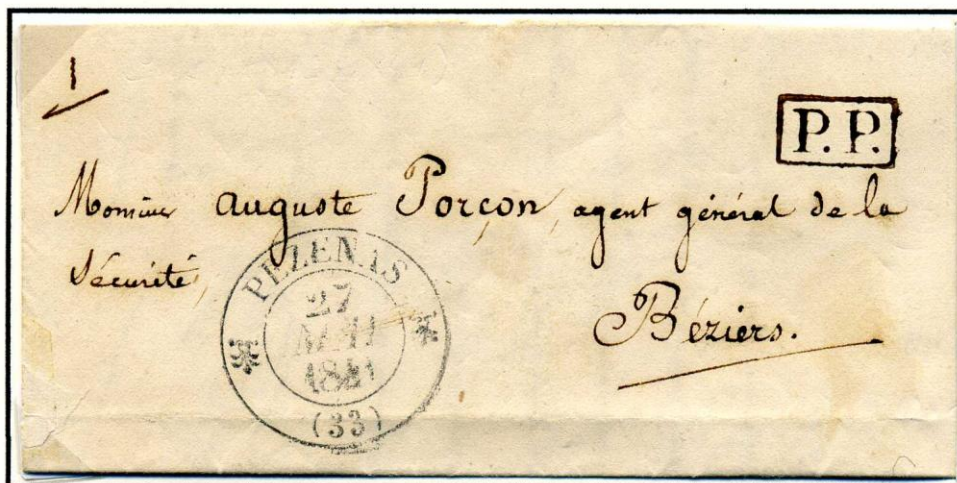 1
P.P.
Monsieur Auguste Porçon, agent général de la
Sécurité,
Béziers.
PEZENAS
27
MAI
1841
(33)